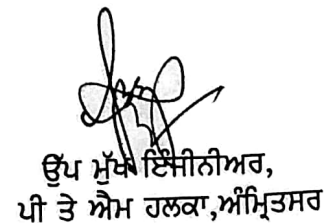 ਉੱਪ ਮੁੱਖ ਇੰਜੀਨੀਅਰ,
ਪੀ ਤੇ ਐਮ ਹਲਕਾ,ਅੰਮ੍ਰਿਤਸਰ